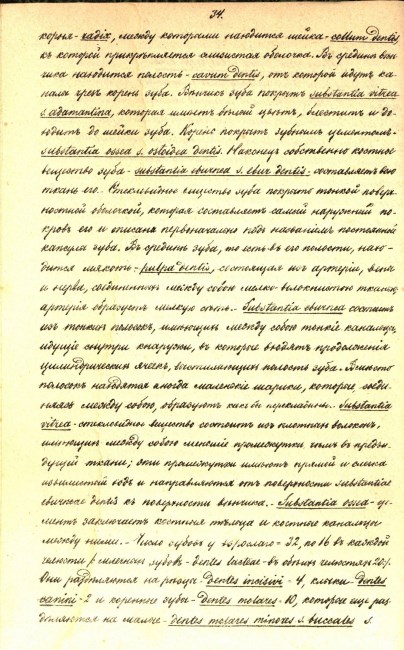 34.
корня - radix, между которыми находится шейка - collum dentis,
къ которой прикрѣпляется слизистая оболочка. Въ срединѣ вѣн-
чика находится полость - cavum dentis, отъ которой идутъ ка-
налы чрезъ корень зуба. Вѣнчикъ зуба покрытъ substantia vitrea
s. adamantina, которая имѣетъ бѣлый цвѣтъ, блеститъ и до-
ходитъ до шейки зуба. Корень покрытъ зубнымъ цементомъ -
substantia ossea s. osteoidea dentis. Наконецъ собственно костное
вещество зуба - substantia eburnea s. ebur dentis - составляетъ всю
ткань его. Стекловидное вещество зуба покрыто тонкой поверх-
ностной оболочкой, которая составляетъ самый наружный по-
кровъ его и описана первоначально подъ названіемъ постоянной
капсулы зуба. Въ срединѣ зуба, то есть въ его полости, нахо-
дится мякоть - pulpa dentis, состоящая изъ артеріи, вены
и нерва, соединенныхъ между собою мелко-волокнистою тканью,
артерія образуетъ мелкую сѣть. - Substantia eburnea состоитъ
изъ тонкихъ полосокъ, имѣющихъ между собою тонкіе канальцы,
идущіе снутри кнаружи, въ которые входятъ продолженія
цилиндрическихъ ячеекъ, выстилающихъ полость зуба. Вмѣсто
полосокъ находятся иногда маленькіе шарики, которые соеди-
няясь между собою, образуютъ какъ бы перекладины. - Substantia
vitrea - стекловидное вещество состоитъ изъ плотныхъ волоконъ,
имѣющихъ между собою меньшіе промежутки чѣмъ въ преды-
дущей ткани; эти промежутки имѣютъ прямой и слегка
извилистый ходъ и направляются отъ поверхности substantiae
eburneae dentis къ поверхности вѣнчика. - Substantia ossea - це-
ментъ заключаетъ костныя тѣльца и костные канальцы
между ними. - Число зубовъ у взрослаго - 32, по 16 въ каждой
челюсти (молочныхъ зубовъ - dentes lactei - въ обѣихъ челюстяхъ 20).
Они раздѣляются на рѣзцы dentes incisivi - 4, клыки dentes
canini - 2 и коренные зубы - dentes molares - 10, которые еще раз-
дѣляются на малые - dentes molares minores s. buccales s.